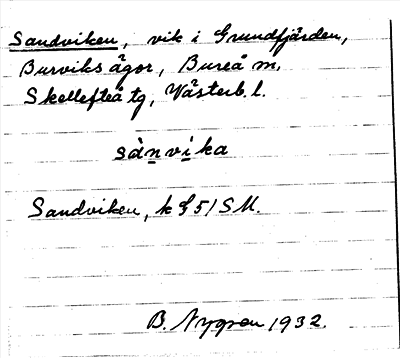 Sandviken, vik i Grundfjärden,
Burviks ägor, Bureå m,
Skellefteå tg, Västerb. l.
sànvika
Sandviken, k § 51 SM.
B. Nygren 1932.